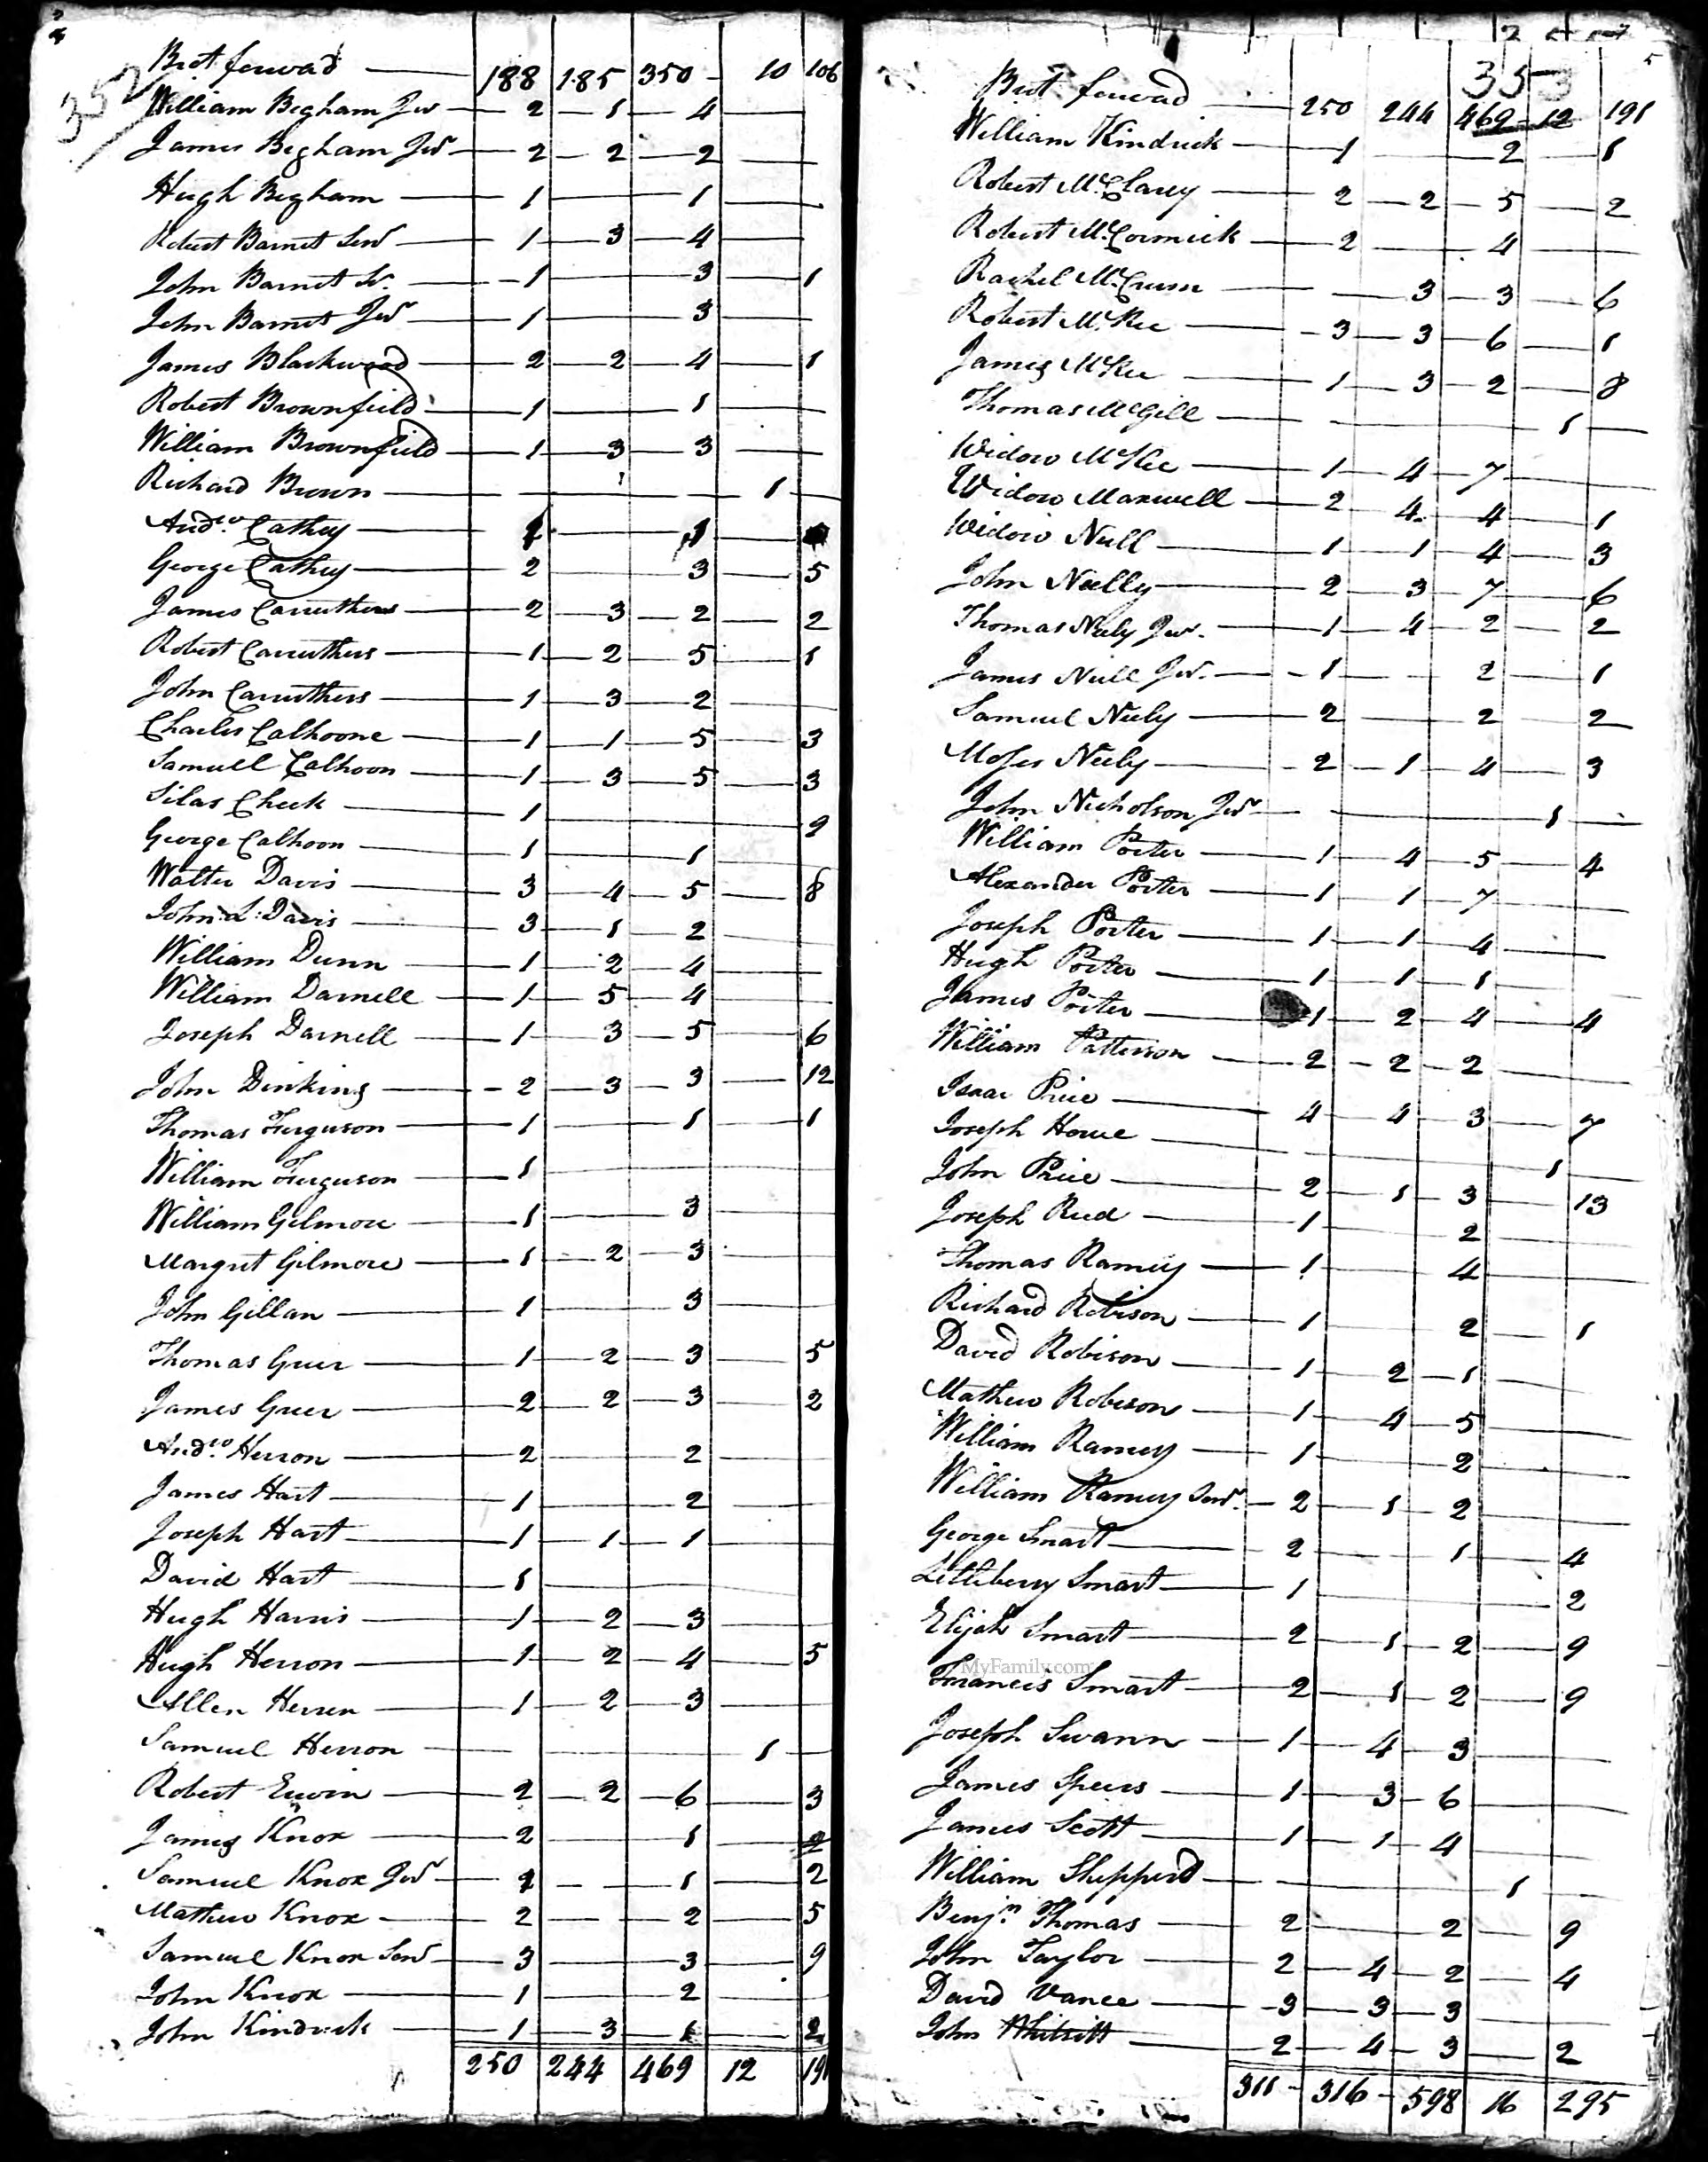 352
Brot forward 188 185 350 10 106
William Bigham Junr 2 1 4
James Bigham Junr 2 2 2
Hugh Bigham 1 1
Robert Barnet Senr 1 3 4
John Barnet Sr. 1 3 1
John Barnet Junr 1 3
James Blackwood 2 2 4 1
Robert Brownfield 1 1
William Brownfield 1 3 3
Richard Brown 1
Andw. Cathey 1
George Cathey 2 3 5
James Carruthers 2 3 2 2
Robert Carruthers 1 2 5 1
John Carruthers 1 3 2
Charles Calhoone 1 1 5 3
Samuell Calhoon 1 3 5 3
Silas Cheek 1 9
George Calhoon 1 1
Walter Davis 3 4 5 8
John L: Davis 3 1 2
William Dunn 1 2 4
William Darnell 1 5 4
Joseph Darnell 1 3 5 6
John Dinkins 2 3 3 12
Thomas Ferguson 1 1 1
William Ferguson 1
William Gilmore 1 3
Margret Gilmore 1 2 3
John Gillan 1 3
Thomas Greer 1 2 3 5
James Greer 2 2 3 2
Andw. Herron 2 2
James Hart 1 2
Joseph Hart 1 1 1
David Hart 1
Hugh Harris 1 2 3
Hugh Herron 1 2 4 5
Allen Herren 1 2 3
Samuel Herron 1
Robert Erwin 2 2 6 3
James Knox 2 1 2
Samuel Knox Junr 1 2
Mathew Knox 2 2 5
Samuel Knox Senr 3 3 9
John Knox 1 2
John Kindrick 1 3 1 2
250 244 469 12 191
353
Brot forward 250 244 469 12 191
William Kindrick 1 2 1
Robert McClarey 2 2 5 2
Robert McCormick 2 4
Rachel McCrum 3 3 6
Robert McKee 3 3 6 1
James McKee 1 3 2 8
Thomas McGill 1
Widow McKee 1 4 7
Widow Maxwell 2 4 4 1
Widow Neill 1 1 4 3
John Neelly 2 3 7 6
Thomas Neely Junr. 1 4 2 2
James Neill Junr. 1 2 1
Samuel Neely 2 2 2
Moses Neely 2 1 4 3
John Nicholson Junr 1
William Porter 1 4 5 4
Alexander Porter 1 1 7
Joseph Porter 1 1 4
Hugh Porter 1 1 1
James Porter 1 2 4 4
William Patterson 2 2 2
Isaac Price 4 4 3 7
Joseph Howe 1
John Price 2 1 3 13
Joseph Reed 1 2
Thomas Ramey 1 4
Richard Robison 1 2 1
David Robison 1 2 1
Mathew Robison 1 4 5
William Ramey 1 2
William Ramey Senr. 2 1 2
George Smart 2 1 4
Littleberry Smart 1 2
Elijah Smart 2 1 2 9
MyFamily.com
Francis Smart 2 1 2 9
Joseph Swann 1 4 3
James Speers 1 3 6
James Scott 1 1 4
William Shepperd 1
Benjn. Thomas 2 2 9
John Taylor 2 4 2 4
David Vance 3 3 3
John Whitsitt 2 4 3 2
311 316 598 16 295